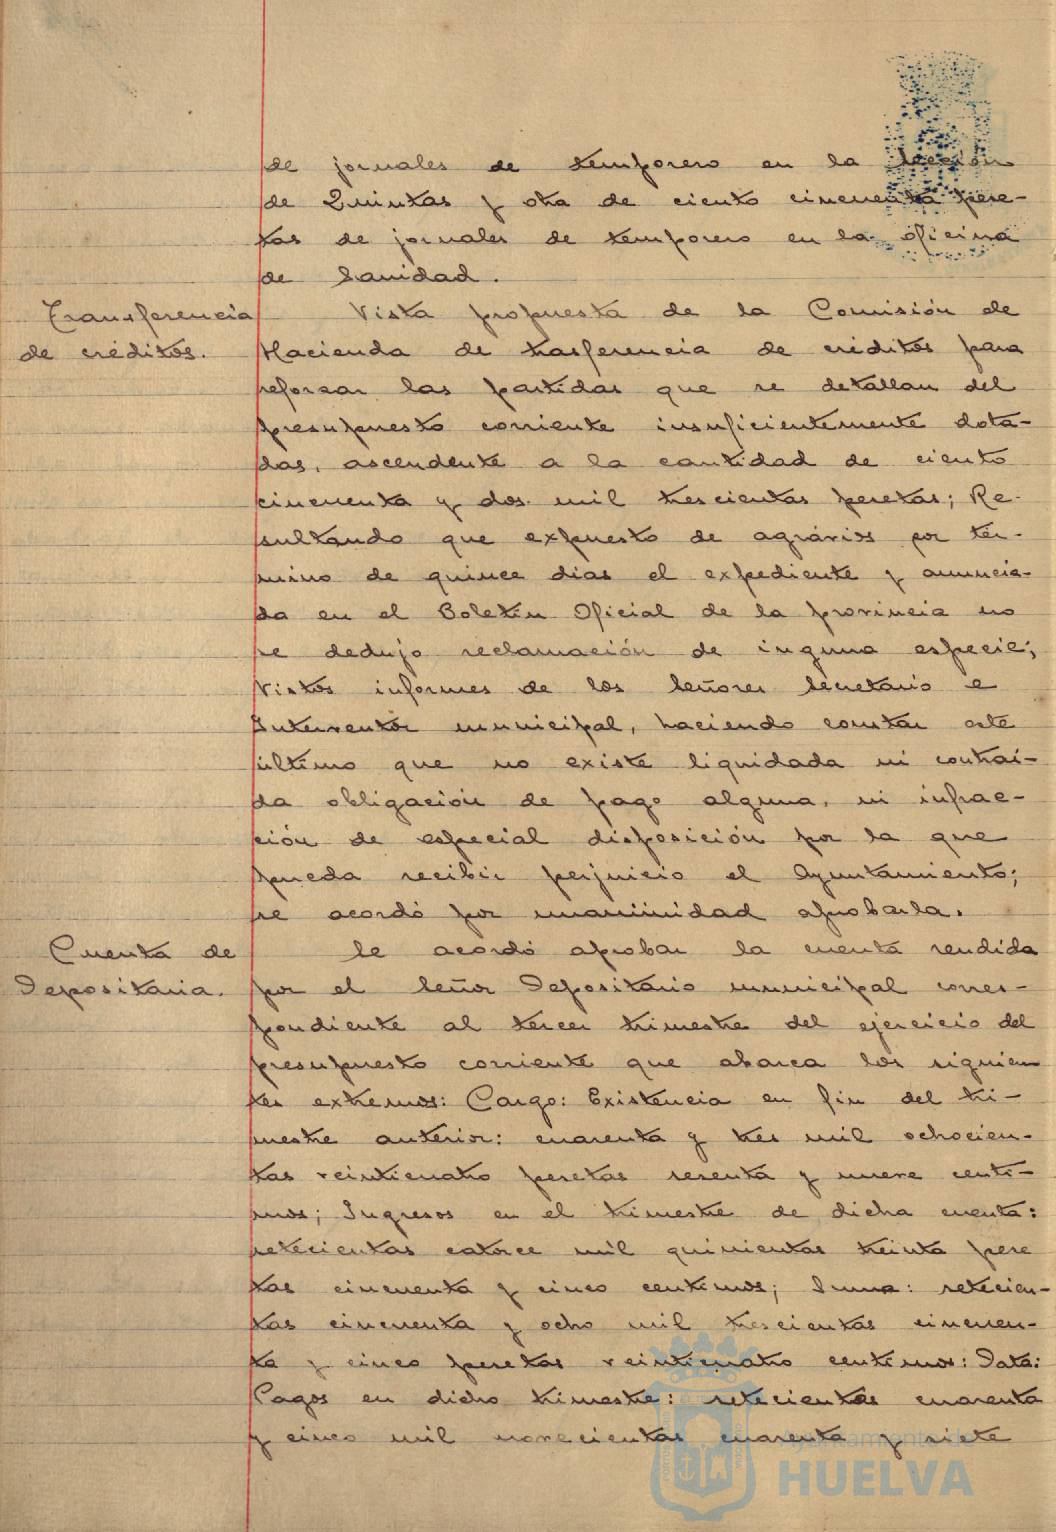 de jornales de temporero en la Sección
de Quintas y otra de ciento cincuenta pese-
tas de jornales de temporero en la oficina
de Sanidad.
Transferencia
de créditos.
Vista propuesta de la Comisión de
Hacienda de trasferencia de créditos para
reforzar las partidas que se detallan del
presupuesto corriente insuficientemente dota-
das, ascendente a la cantidad de ciento
cincuenta y dos mil trescientas pesetas; Re-
sultando que expuesto de agrários por tér-
mino de quince dias el expediente y anuncia-
da en el Boletin Oficial de la provincia no
se dedujo reclamación de inguna especie;
Vistos informes de los Señores Secretario e
Interventor municipal, haciendo constar este
último que no existe liquidada ni contrai-
da obligación de pago alguna, ni infrac-
ción de especial disposición por la que
pueda recibir perjuicio el Ayuntamiento;
se acordó por unanimidad aprobarla.
Cuenta de
Depositaria.
Se acordó aprobar la cuenta rendida
por el Señor Depositario municipal corres-
pondiente al tercer trimestre del ejercicio del
presupuesto corriente que abarca los siguien
tes extremos: Cargo: Existencia en fin del tri-
mestre anterior: cuarenta y tres mil ochocien-
tas veinticuatro pesetas sesenta y nueve centi-
mos; Ingresos en el trimestre de dicha cuenta:
setecientas catorce mil quinientas treinta pese
tas cincuenta y cinco centimos; Suma: setecien-
tas cincuenta y ocho mil trescientas cincuen-
ta y cinco pesetas veinticuatro centimos: Data:
Pagos en dicho trimestre: setecientas cuarenta
y cinco mil novecientas cuarenta y siete
Ayuntamiento de
HUELVA